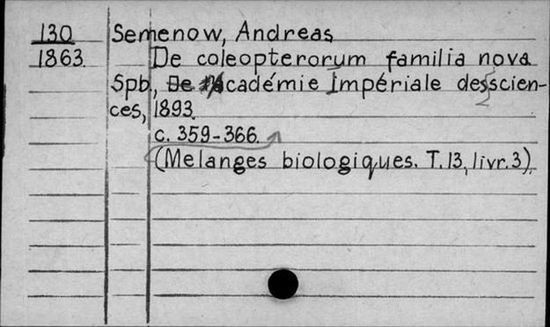 130 Semenow, Andreas
1863. De coleopterorum familia nova
Spb., Académie Impériale desscien-
ces, 1893.
c. 359-366.
(Melanges biologiques. T.13, livr.3).